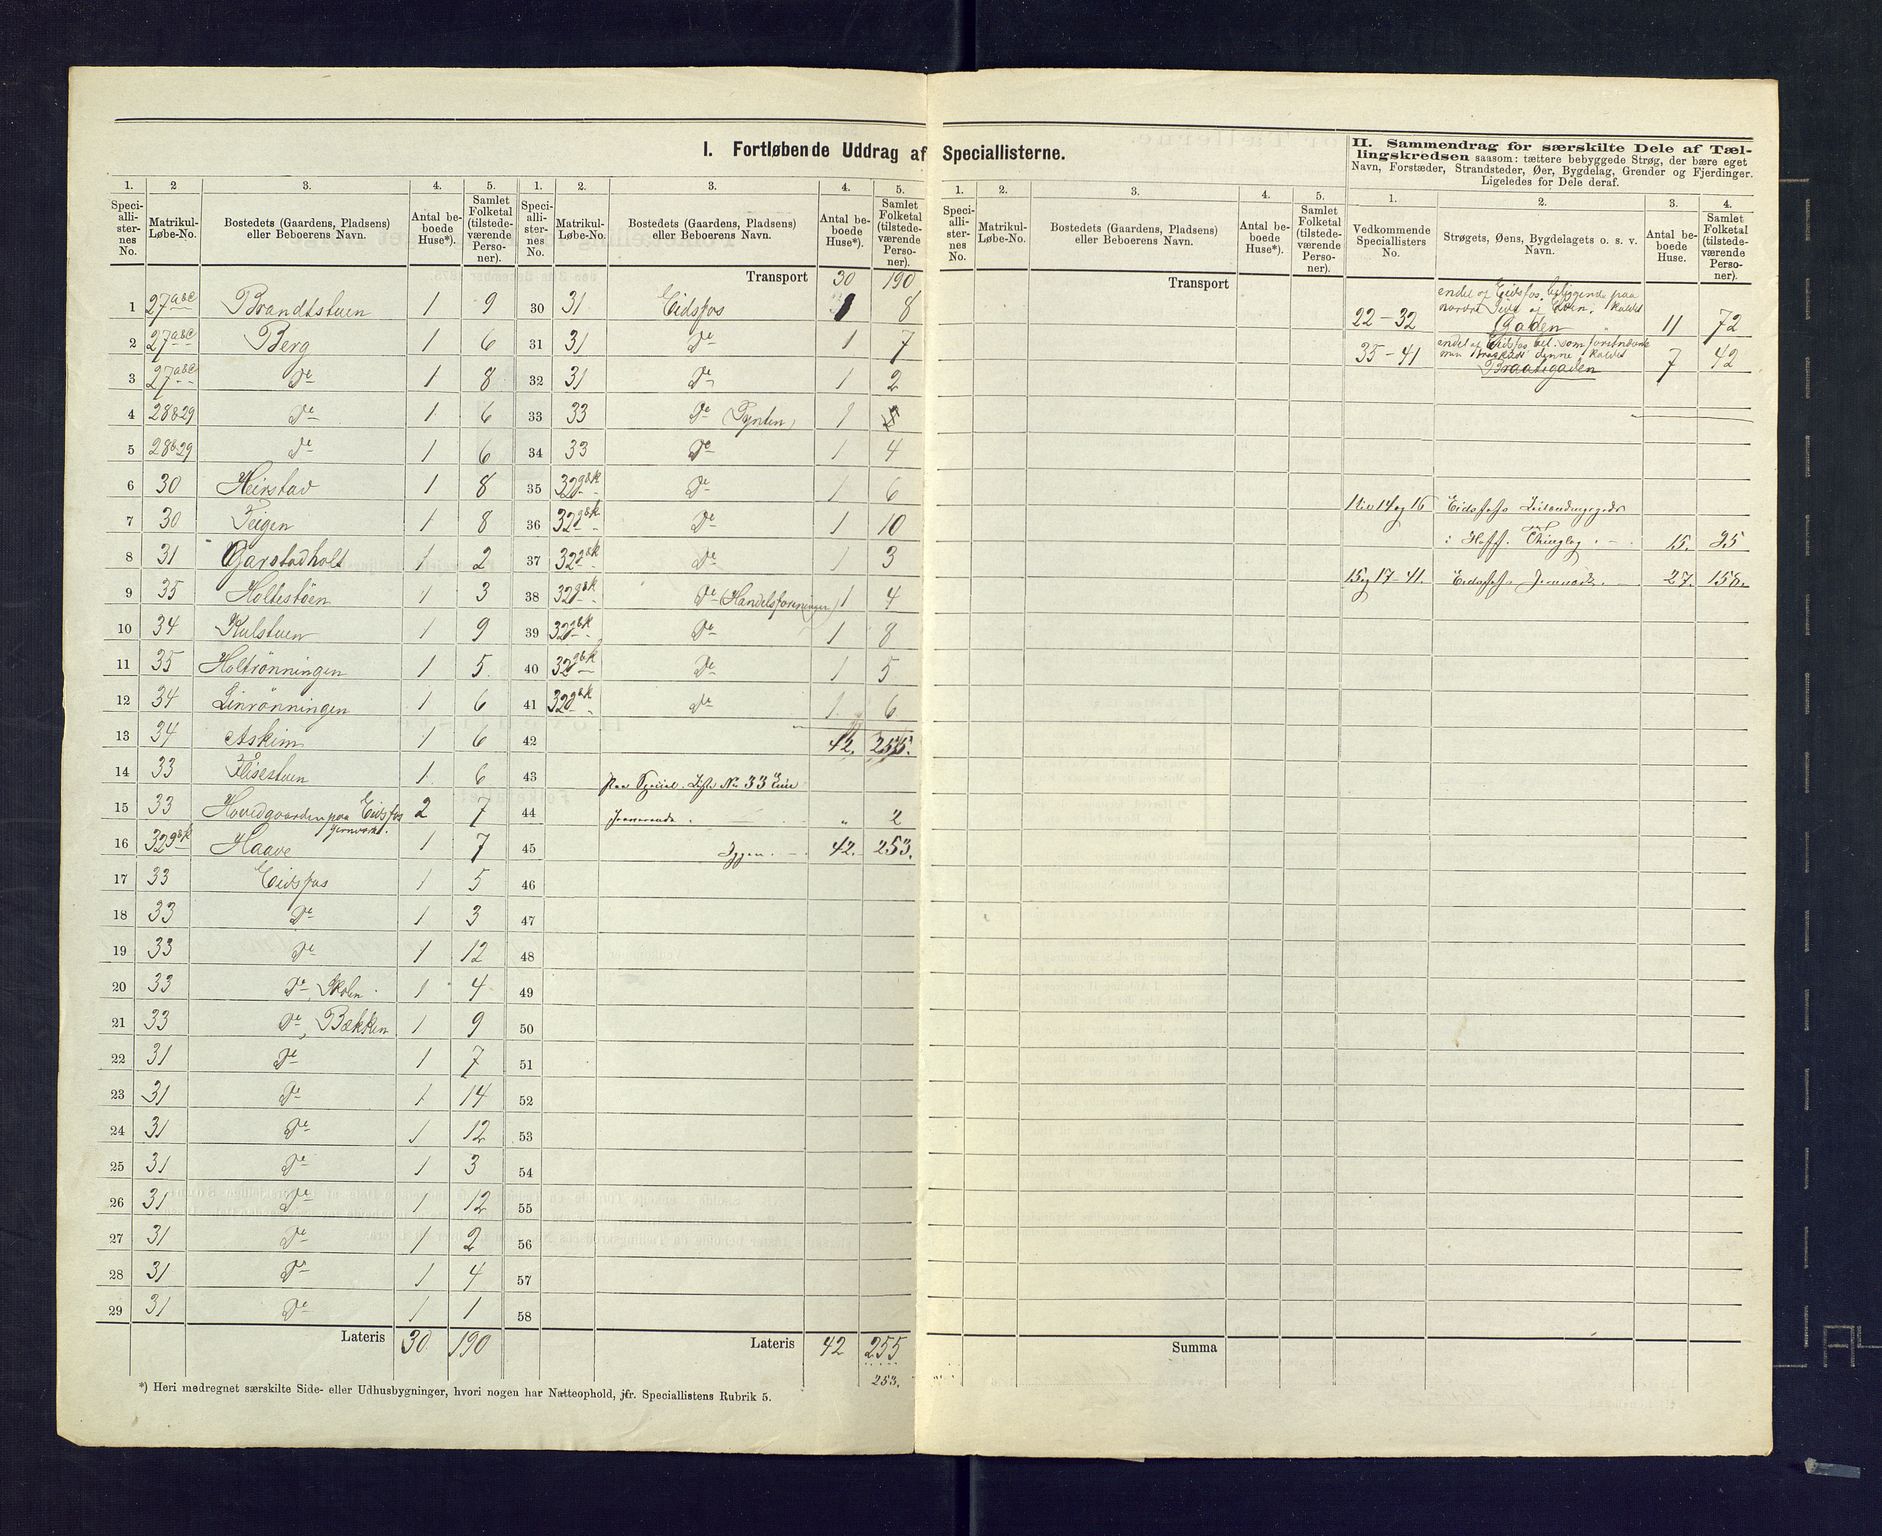 I. Fortløbende Uddrag af Speciallisterne.
II. Sammendrag for særskilte Dele af Tæl-
lingskredsen saasom: tættere bebyggede Strøg, der bære eget
Navn, Forstæder, Strandsteder, Øer, Bygdelag, Grender og Fjerdinger.
Ligeledes for Dele deraf.
1. 2 3. 4. 5.
Speciallisternes No. Matrikul-Løbe-No. Bostedets (Gaardens, Pladsens) eller Beboerens Navn. Antal beboede Huse*). Samlet Folketal (tilstedeværende Personer).
1 27a&c Brandtstuen 1 9
2 27a&c Berg 1 6
3 27a&c De 1 8
4 28&29 De 1 6
5 28&29 De 1 6
6 30 Heirstad 1 8
7 30 Teigen 1 8
8 31 Garstadholt 1 2
9 35 Holtestøen 1 3
10 34 Kulstuen 1 9
11 35 Holtrönningen 1 5
12 34 Linrönningen 1 6
13 34 Askim 1 6
14 33 Flisestuen 1 6
15 33 Hovedgaarden paa Eidsfos Jernværk. 2 7
16 32g&k Haave 1 7
17 33 Eidsfos 1 5
18 33 De 1 3
19 33 De 1 12
20 33 De Skolen 1 4
21 33 De, Bækken 1 9
22 31 De 1 7
23 31 De 1 14
24 31 De 1 12
25 31 De 1 3
26 31 De 1 12
27 31 De 1 2
28 31 De 1 4
29 31 De 1 1
Lateris 30 190
*) Heri medregnet særskilte Side- eller Udhusbygninger, hvori nogen har Natteophold, jfr. Speciallistens Rubrik 5.
1. 2. 3. 4. 5.
Speciallisternes No. Matrikul-Løbe-No. Bostedets (Gaardens, Pladsens) eller Beboerens Navn. Antal beboede Huse*). Samlet Folketal (tilstedeværende Personer).
Transport 30 190
30 31 Eidsfos 1 8
31 31 De 1 7
32 31 De 1 2
33 33 De (Tynten) 1
34 33 De 1 4
35 32g&k De 1 6
36 32g&k De 1 10
37 32g&k De 1 3
38 32g&k De (Handelsforeningen) 1 4
39 32g&k De 1 8
40 32g&k De 1 5
41 32g&k De 1 6
42 42. 255.
43 paa Special. Liste No 33
44 „ 2
45 Igjen. 42. 253.
46
47
48
49
50
51
52
53
54
55
56
57
58
Lateris 42 255
253.
1. 2. 3. 4. 5.
Speciallisternes No. Matrikul-Løbe-No. Bostedets (Gaardens, Pladsens) eller Beboerens Navn. Antal beboede Huse*). Samlet Folketal (tilstedeværende Personer).
Transport
Summa
1. 2. 3. 4.
Vedkommende Speciallisters No. Strøgets, Øens, Bygdelagets o. s. v. Navn. Antal beboede Huse. Samlet Folketal (tilstedeværende Personer).
endel af Eidsfos, beliggende paa
nordre Side af Elven, kaldet
22-32 Gaden 11 72
endel af Eidsfos bel. som
35-41 Braatagaden 7 42
1 til 14 og 16 Eidsfos
i Hoff Thinglag 15. 95
15 og 17-41. Eidsfos Jernværk. 27. 158.